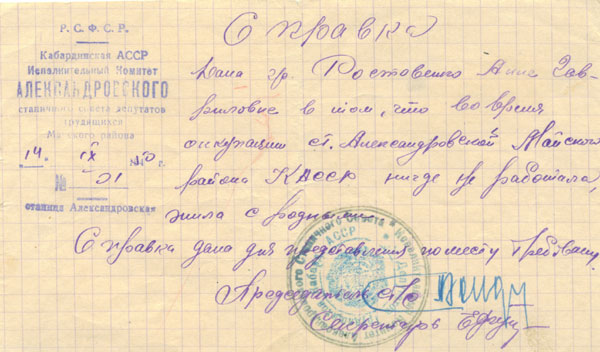 Р. С. Ф. С. Р.
Кабардинская АССР
Исполнительный Комитет
АЛЕКСАНДРОВСКОГО
станичного совета депутатов
трудящихся
Майского района
14. IX
№ 31
станица Александровская
Справка
Дана гр. Ростовенко Анне Гав-
риловне в том, что во время
оккупации ст. Александровской Майского
района КАССР нигде не работала,
жила с родными.
Справка дана для представления по месту требован.
Председатель ст/с
Секретарь